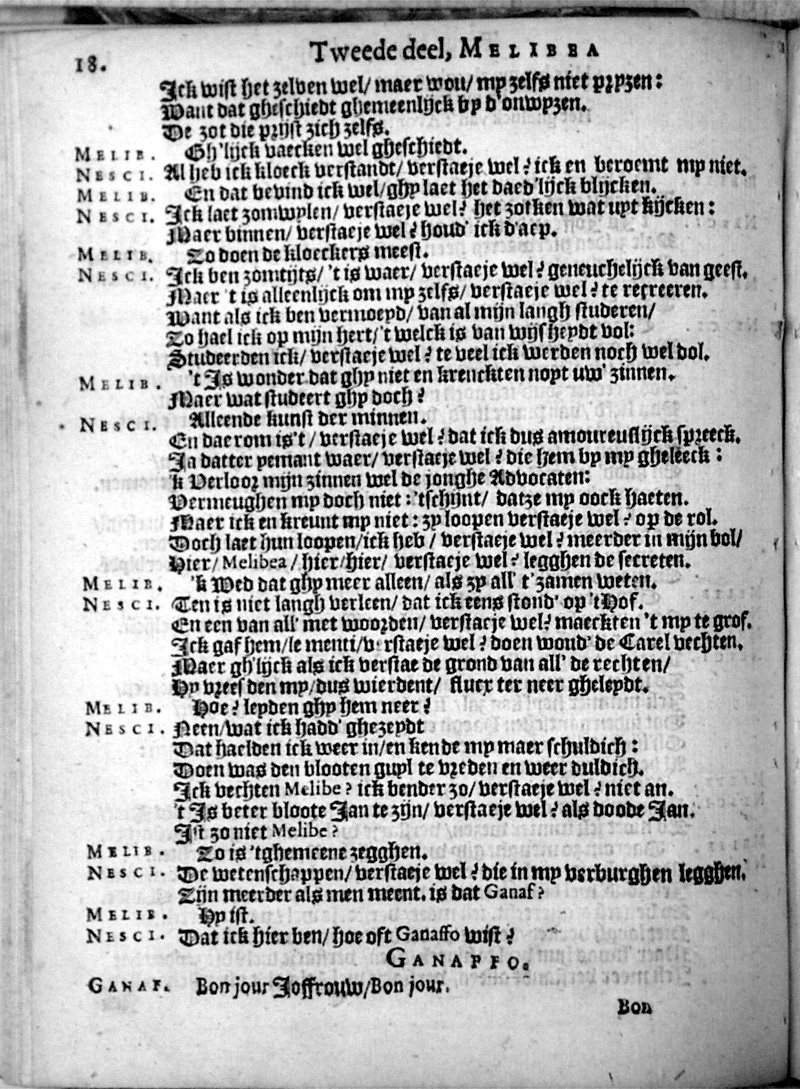 18. Tweede deel, MELIBEA
Ick wist het zelven wel/ maer wou/ my zelfs niet pryzen:
Want dat gheschiedt ghemeenlijck by d'onwyzen.
De zot die prijst zich zelfs.
MELIB. Gh'lijck vaecken wel gheschiedt.
NESCI. Al heb ick kloeck verstandt/ verstaeje wel? ick en beroemt my niet.
MELIB. En dat bevind ick wel/ ghy laet het daed'lijck blijcken.
NESCI. Ick laet zomwylen/ verstaeje wel? het zotken wat uyt kijcken:
Maer binnen/ verstaeje wel? houd' ick d'aep.
MELIB. Zo doen de kloeckers meest.
NESCI. Ick ben zomtijts/ 't is waer/ verstaeje wel? geneuchelijck van geest.
Maer 't is alleenlijck om my zelfs/ verstaeje wel? te recreeren.
Want als ick ben vermoeyd/ van al mijn langh studeren/
Zo hael ick op mijn hert/ 't welck is van wijsheydt vol:
Studeerden ick/ verstaeje wel? te veel ick werden noch wel dol.
MELIB. 't Is wonder dat ghy niet en krenckten noyt uw' zinnen.
Maer wat studeert ghy doch?
NESCI. Alleende kunst der minnen.
En daerom is't/ verstaeje wel? dat ick dus amoureuslijck spreeck.
Ja datter yemant waer/ verstaeje wel? die hem by my gheleeck:
'k Verloor mijn zinnen wel de jonghe Advocaten:
Vermeughen my doch niet: 'tschijnt/ datze my oock haeten.
Maer ick en kreunt my niet: zy loopen verstaeje wel? op de rol.
Doch laet hun loopen/ ick heb/ verstaeje wel? meerder in mijn bol/
Hier/ Melibea/ hier/ hier/ verstaeje wel? legghen de secreten.
MELIB. 'k Wed dat ghy meer alleen/ als zy all' t'zamen weten.
NESCI. Ten is niet langh verleen/ dat ick eens stond' op 'tHof.
En een van all' met woorden/ verstaeje wel? maeckten 't my te grof.
Ick gaf hem/ le menti/ verstaeje wel? doen woud' de Carel vechten.
Maer gh'lijck als ick verstae de grond van all' de rechten/
Hy vreesden my/ dus wierdent/ flucx ter neer gheleydt.
MELIB. Hoe? leyden ghy hem neer?
NESCI. Neen/ wat ick hadd' ghezeydt
Dat haelden ick weer in/ en kende my maer schuldich:
Doen was den blooten guyl te vreden en weer duldich.
Ick vechten Melibe? ick bender zo/ verstaeje wel? niet an.
't Is beter bloote Jan te zijn/ verstaeje wel? als doode Jan.
Ist zo niet Melibe?
MELIB. Zo is 'tghemeene zegghen.
NESCI. De wetenschappen/ verstaeje wel? die in my verburghen legghen.
Zijn meerder als men meent. is dat Ganaf?
MELIB. Hy ist.
NESCI. Dat ick hier ben/ hoe oft Ganaffo wist?
GANAFFO.
GANAF. Bon jour Joffrouw/ Bon jour.
Bon